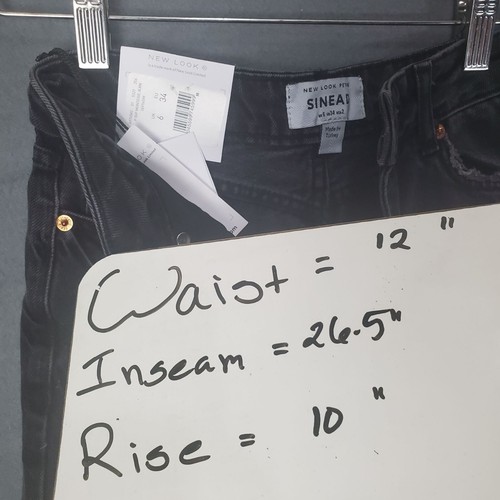 NEW LOOK
34
6
NEW LOOK PETITE
SINEAD
Made in
Turkey
Waist = 12 "
Inseam = 26.5"
Rise = 10 "